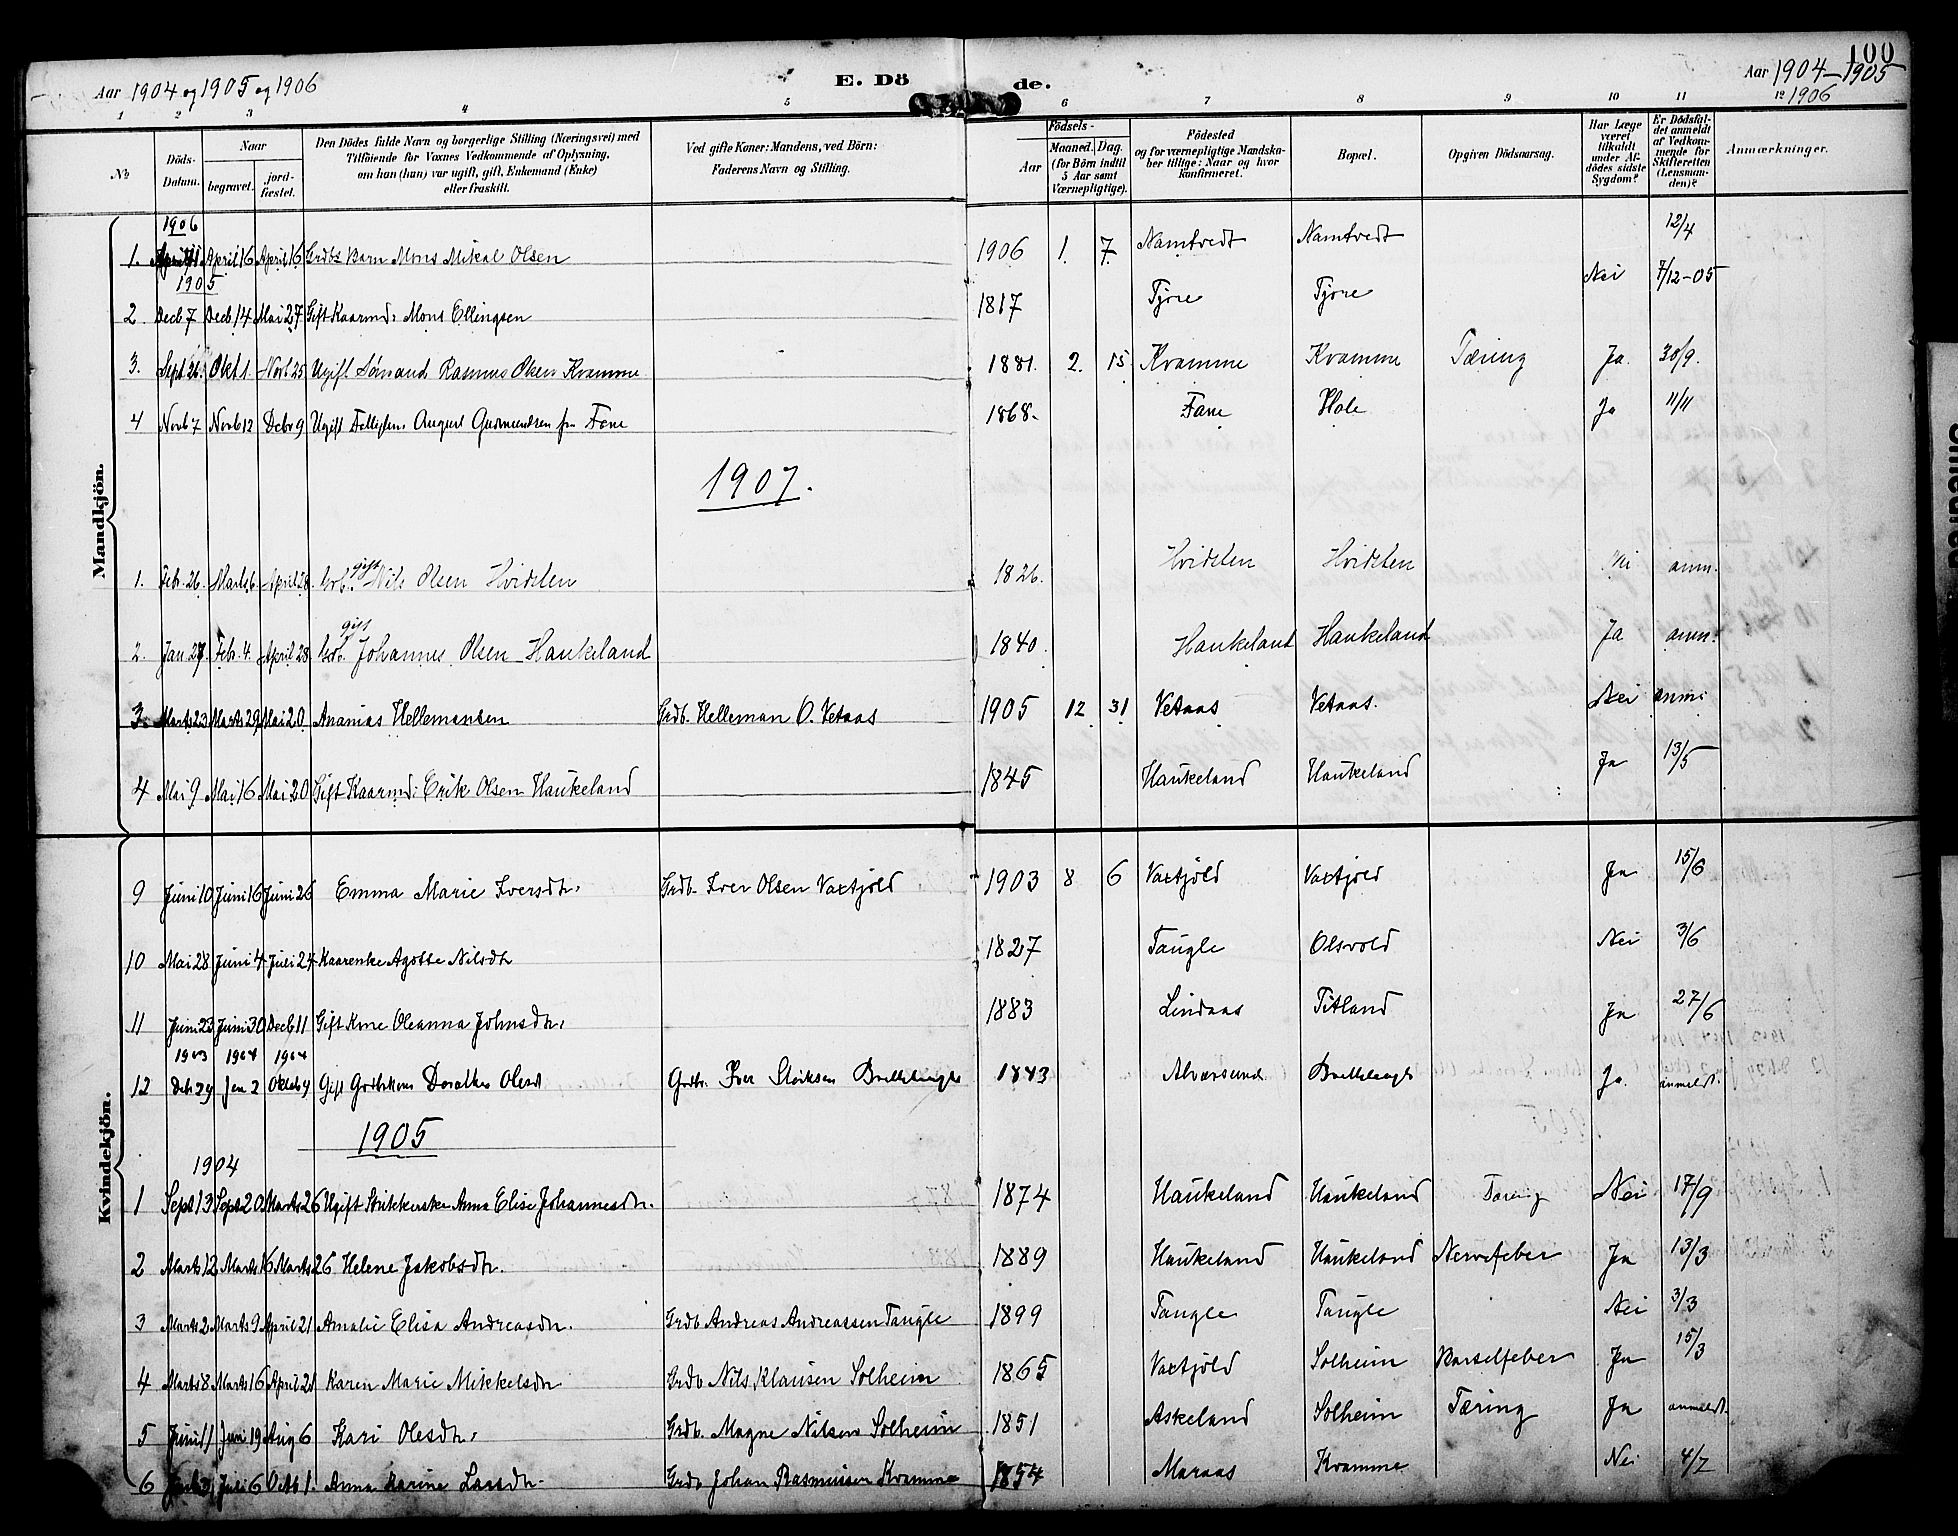 100
Aar 1904 og 1905 og 1906 E. Dö de. Aar 1904-1905
1906
1 2 3 4 5 6 7 8 9 10 11 12
No. Döds-Datum. Naar begravet. jordfæstet. Den Dödes fulde Navn og borgerlige Stilling (Næringsvei) med Tilföiende for Voxnes Vedkommende af Oplysning, om han (hun) var ugift, gift, Enkemand (Enke) eller fraskilt. Ved gifte Koner: Mandens, ved Börn: Faderens Navn og Stilling. Födsels- Aar Maaned. Dag. (for Börn indtil 5 Aar samt Værnepligtige). Födested og for værnepligtige Mandskaber tillige: Naar og hvor konfirmeret. Bopæl. Opgiven Dödsaarsag. Har Læge været tilkaldt under Afdödes sidste Sygdom? Er Dödsfaldet anmeldt af Vedkommende for Skifteretten (Lensmanden)? Anmærkninger.
Mandkjön.
1906
1. April 11. April 16 April 16 Grdbs Barn Mons Mikal Olsen 1906 1. 7 Namtvedt Namtvedt 12/4
1905
2. Decb 7 Decb 14 Mai 27 Gift Kaarmd: Mons Ellingsen 1817 Tjore Tjore Nei 7/12-05
3. Sept. 26. Okt 1. Novb 25 Ugift Sömand Rasmus Olsen Kvamme 1881. 2. 15 Kvamme Kvamme Tæring Ja. 30/9.
4 Novb 7 Novb 12 Debr 9 Ugift August Gudmundsen fra Fane 1868. Fane Hole Ja 11/11
1907.
1. Febr. 26. Marts 6. April 28. Grb. gift Nils Olsen Hvidsten 1826. Hvidsten Hvidsten Nei anm.
2. Jan 27. Febr. 4. April 28 Grb. gift Johannes Olsen Haukeland 1840. Haukeland Haukeland Ja anm.
3. Marts 23 Marts 29 Mai 20 Ananias Hellemansen Grdb. Helleman O. Vetaas 1905 12 31 Vetaas Vetaas. Nei anm:
4 Mai 9 Mai 16 Mai 20 Gift Kaarmd: Erik Olsen Haukeland 1845 Haukeland Haukeland Ja 13/5
Kvindekjön.
9 Juni 10 Juni 16 Juni 26 Emma Marie Iversdtr. Grdb. Iver Olsen Vaxtjöld 1903 8 6 Vaxtjöld Vaxtjöld Ja 15/6
10 Mai 28 Juni 4 Juli 24 Kaarenke Agothe Nilsdtr 1827 Taugle Olsvold Nei 3/6
11 Juni 23 Juni 30 Decb 11 Gift Kone Oleanna Johnsdtr. 1883 Lindaas Titland Ja 27/6
1903 1904 1904
12 Deb 29 Jan 2 Oktob 9 Gift Grdbkone Dorathea Olesd Grdbr. Iver 1843 Alversund Ja. anmeldt.
1905
1904
1 Sept 13 Sept 20 Marts 26 Ugift Strikkerske Anna Elise Johannesdtr. 1874 Haukeland Haukeland Tæring Nei 17/9
2 Marts 12 Marts 16 Marts 26 Helene Jakobsdtr. 1889 Haukeland Haukeland Nervefeber Ja 13/3
3 Marts 2 Marts 9 April 21 Amalie Elisa Andreasdtr. Grdb Andreas Andreassen Taugle 1899 Taugle Taugle Nei 3/3
4 Marts 8 Marts 16 April 21 Karen Marie Mikkelsdtr Grdb Nils Klausen Solheim 1865 Vaxtjöld Solheim Barselfeber Ja 15/3
5 Juni 11 Juni 19 Aug 6 Kari Olesdtr. Grdb. Magne Nilsen Solheim 1851 Askeland Solheim Tæring Ja anmeldt.
6 Juli 6 Octb 1. Anna Karine Larsdtr. Grdb Johan Rasmussen Kvamme 1854 Maraas Kvamme Nei 4/7